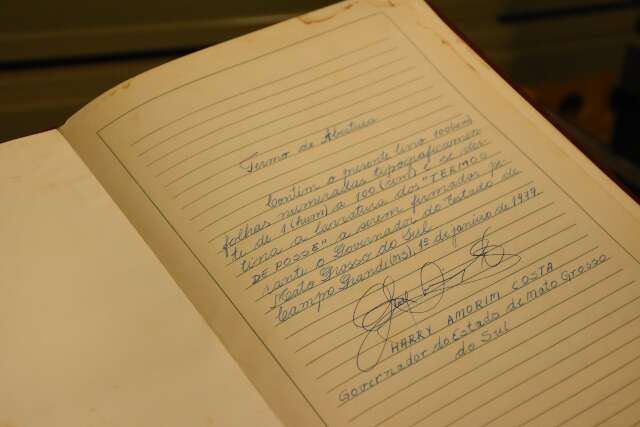 Termo de Abertura
Contém o presente livro 100 (cem)
folhas numeradas tipograficamen
te de 1 (hum) a 100 (cem) e se des
tina a lavratura dos "TERMOS
DE POSSE" a serem firmados pe
rante o Governador do Estado de
Mato Grosso do Sul.
Campo Grande (MS), 1º de janeiro de 1979.
HARRY AMORIM COSTA
Governador do Estado de Mato Grosso
do Sul